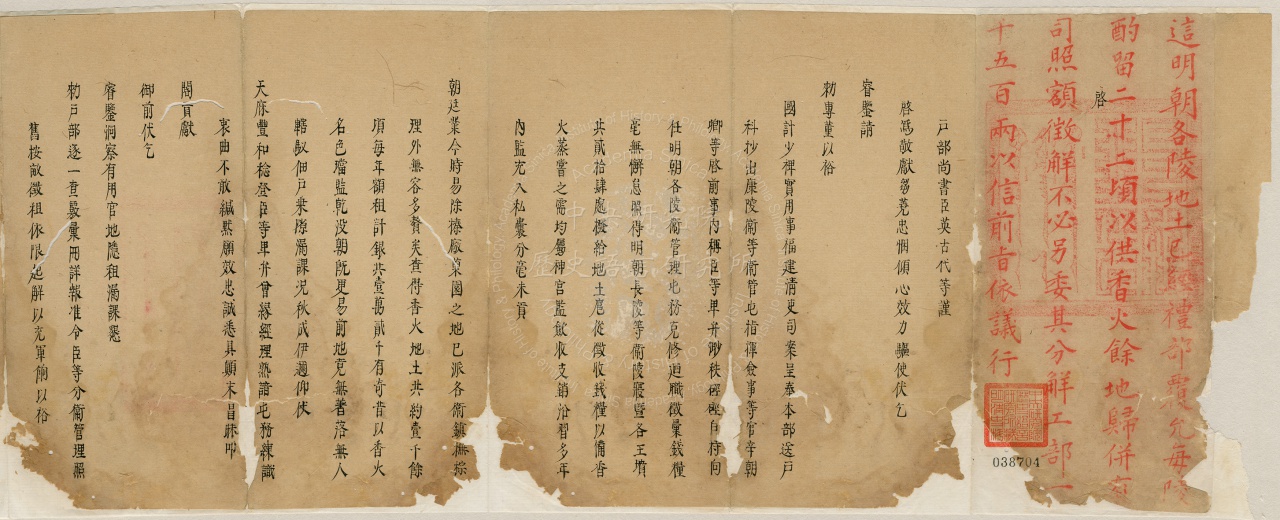 這明朝各陵地土已經禮部覆允每陵
酌留二十二頃以供香火餘地歸併有
司照額徵解不必另委其分解工部一
千五百兩以信前旨依議行
啓
038704
戶部尚書臣英古代等謹
啓為敬獻芻蕘忠悃傾心效力驅使伏乞
睿鑒請
勑專董以裕
國計少裨實用事福建清吏司案呈奉本部送戶
科抄出康陵衛等衛管屯指揮僉事等官辛朝
卿等啓前事內稱臣等卑弁眇秩碑碑自持向
任明朝各陵衛管理屯務克修迺職徵彙錢糧
毫無懈怠照得明朝長陵等衛陵寢暨各王墳
共貳拾肆處撥給地土扈從徵收錢糧以備香
火蒸嘗之需均屬神宮監僉收支銷沿習多年
內監充入私囊分毫未貢
朝廷業今時易除壇廠菓園之地已派各衛鎮撫綜
理外無容多贅矣查得香火地土共約壹千餘
頃每年額租計銀共壹萬貳千有奇昔以香火
名色璫監乾沒朝既更易前地竟無著落無人
轄馭佃戶乘隙漏課況秋成伊邇仰仗
天庥豐和稔登臣等卑弁曾緣經理熟諳屯務練識
衷曲不敢緘默願效忠誠悉具顛末冒昧叩
閽貢獻
御前伏乞
睿鑒洞察有用官地隱租漏課懇
勑戶部逐一查覈彙冊詳報准令臣等分衛管理照
舊按畝徵租依限起解以充軍餉以裕